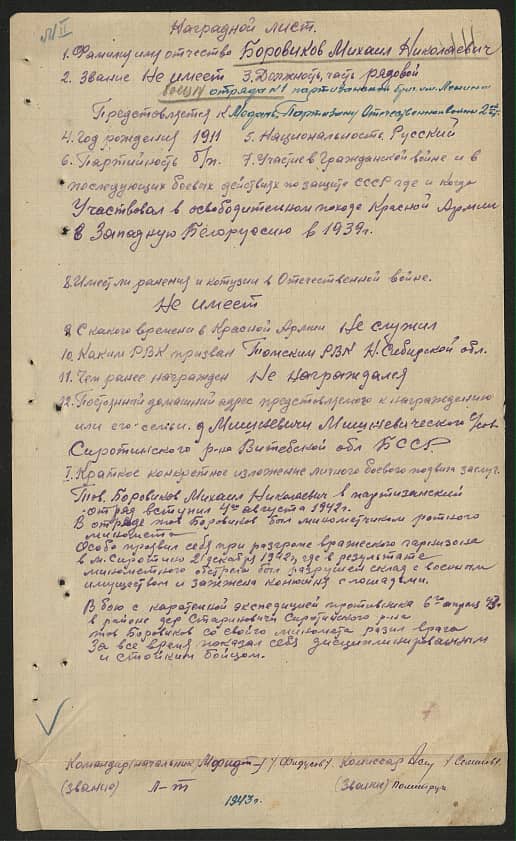 Наградной лист.
1. Фамилия имя отчество Боровиков Михаил Николаевич
2. Звание Не имеет 3. Должность, часть рядовой
отряда №1 партизанской бриг. им. Ленина
Представляется к Медаль "Партизану Отечественной войны 2й ст."
4. Год рождения 1911 5. Национальность Русский
6. Партийность б/п. 7. Участие в Гражданской войне и в
последующих боевых действиях по защите СССР где и когда
Участвовал в освободительном походе Красной Армии
в Западную Белоруссию в 1939г.
8. Имеет ли ранения и контузии в Отечественной войне.
Не имеет
9. С какого времени в Красной Армии Не служил
10. Каким РВК призван Томским РВК Н. Сибирской обл.
11. Чем ранее награжден Не награждался
12. Постоянный домашний адрес представляемого к награждению
или его семьи. д Мишневичи Мишневического с/сов
Сиротинского р-на Витебской обл БССР.
I. Краткое конкретное изложение личного боевого подвига заслуг.
Тов. Боровиков Михаил Николаевич в партизанский
отряд вступил 4го августа 1942г.
В отряде тов Боровиков был минометчиком ротного
миномета
Особо проявил себя при разгроме вражеского гарнизона
в м. Сиротино 2 декабря 1942г, где в результате
минометного обстрела был разрушен склад с военным
имуществом и зажжена конюшня с лошадьми.
В бою с карательной экспедицией противника 6го апреля 43г
в районе дер Стариновичи Сиротинского р-на
тов Боровиков со своего миномета разил врага
За все время показал себя дисциплинированным
и стойким бойцом.
Командир (начальник) Комиссар
(звание) Л-т (Звание) Политрук
1943г.